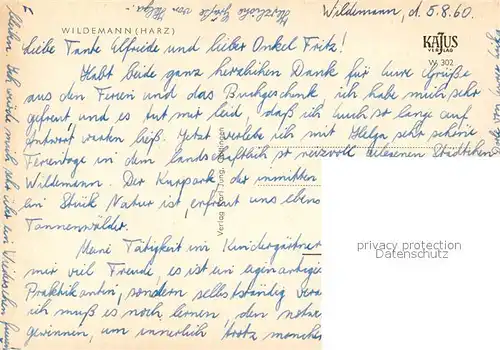 Herzliche Grüße von Helga.
Wildemann, d. 5.8.60.
WILDEMANN (HARZ)
KATUS
VERLAG
W. 302
Liebe Tante Elfriede und lieber Onkel Fritz!
Habt beide ganz herzlichen Dank für Eure Grüße
aus den Ferien und das Buchgeschenk, ich habe mich sehr
gefreut und es tut mir leid, daß ich Euch so lange auf
Antwort warten ließ. Jetzt verlebe ich mit Helga sehr schöne
Ferientage in dem landschaftlich so reizvoll gelegenen Städtchen
Wildemann. Der Kurpark, der inmitten
ein Stück Natur ist, erfreut uns eben
Tannenwälder.
Meine Tätigkeit im Kindergärtner
mir viel Freude, es ist ein
Praktikantin, sondern selbständig vera
ich muß es noch lernen, den notw
gewinnen, um innerlich trotz manches
Verlag Karl Jung
privacy protection
Datenschutz
Ich würde mich sehr über ein Wiedersehen freuen!